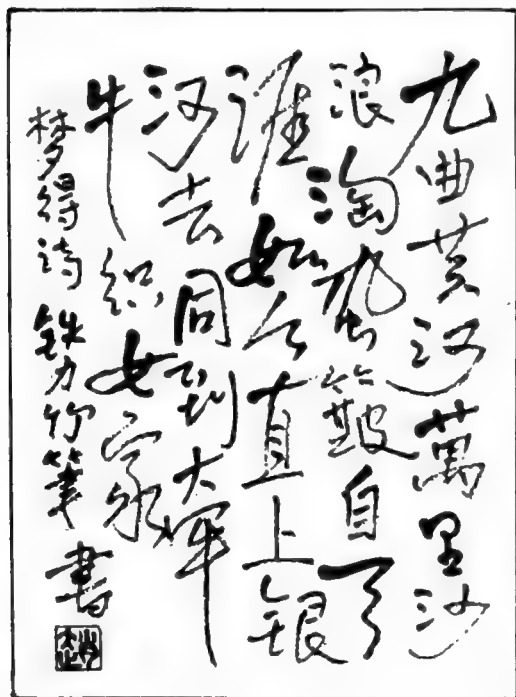 九曲黄河萬里沙
浪淘風簸自天
涯如今直上银
河去同到牵
牛织女家
梦得诗 铁力竹笔書